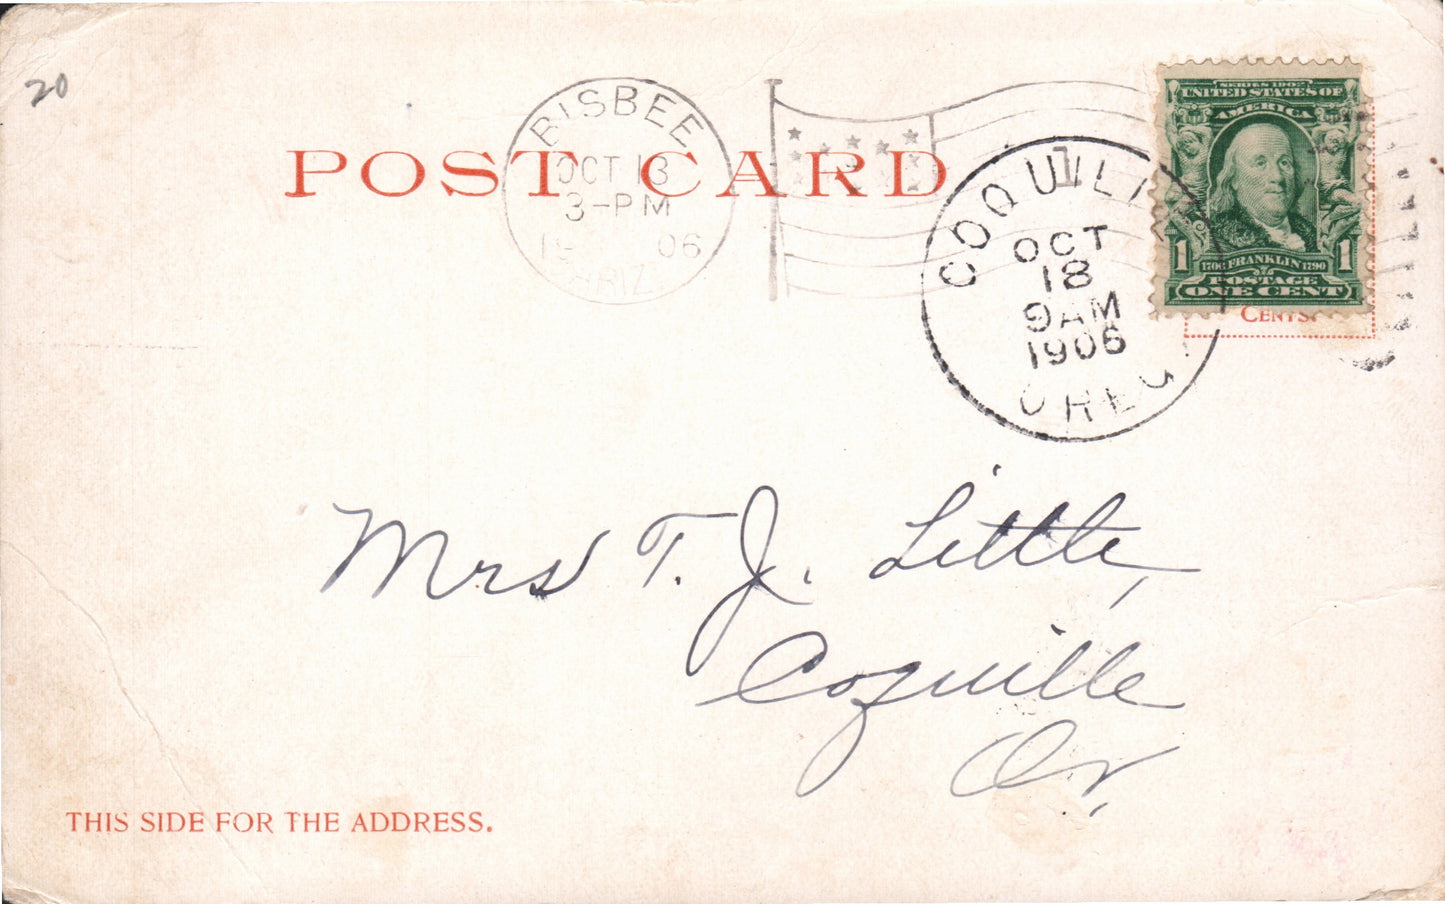 20
POST CARD
BISBEE
OCT 13
3-PM
1906
ARIZ
1
COQUILLE
OCT
18
9AM
1906
OREG
SERIES 1902
UNITED STATES OF
AMERICA
1 1
1706 FRANKLIN 1790
POSTAGE
ONE CENT
CENTS.
Mrs T. J. Little,
Coquille
Or.
THIS SIDE FOR THE ADDRESS.